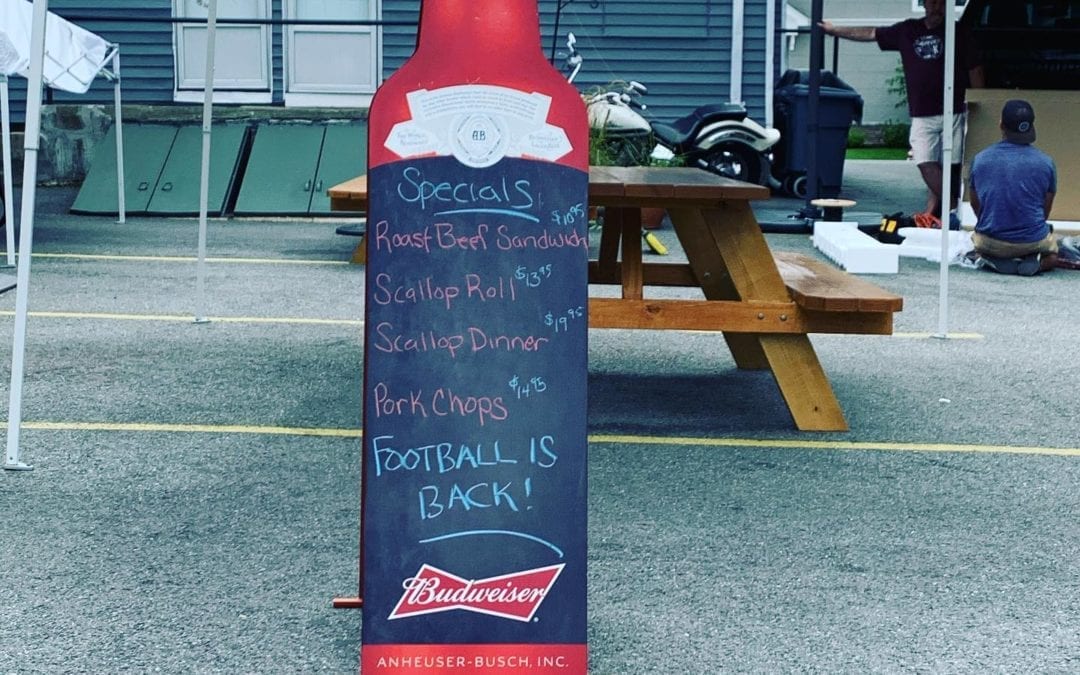 AB
Specials
$10.95
Roast Beef Sandwich
Scallop Roll $13.95
Scallop Dinner $19.95
Pork Chops $14.95
FOOTBALL IS
BACK!
Budweiser
ANHEUSER-BUSCH, INC.